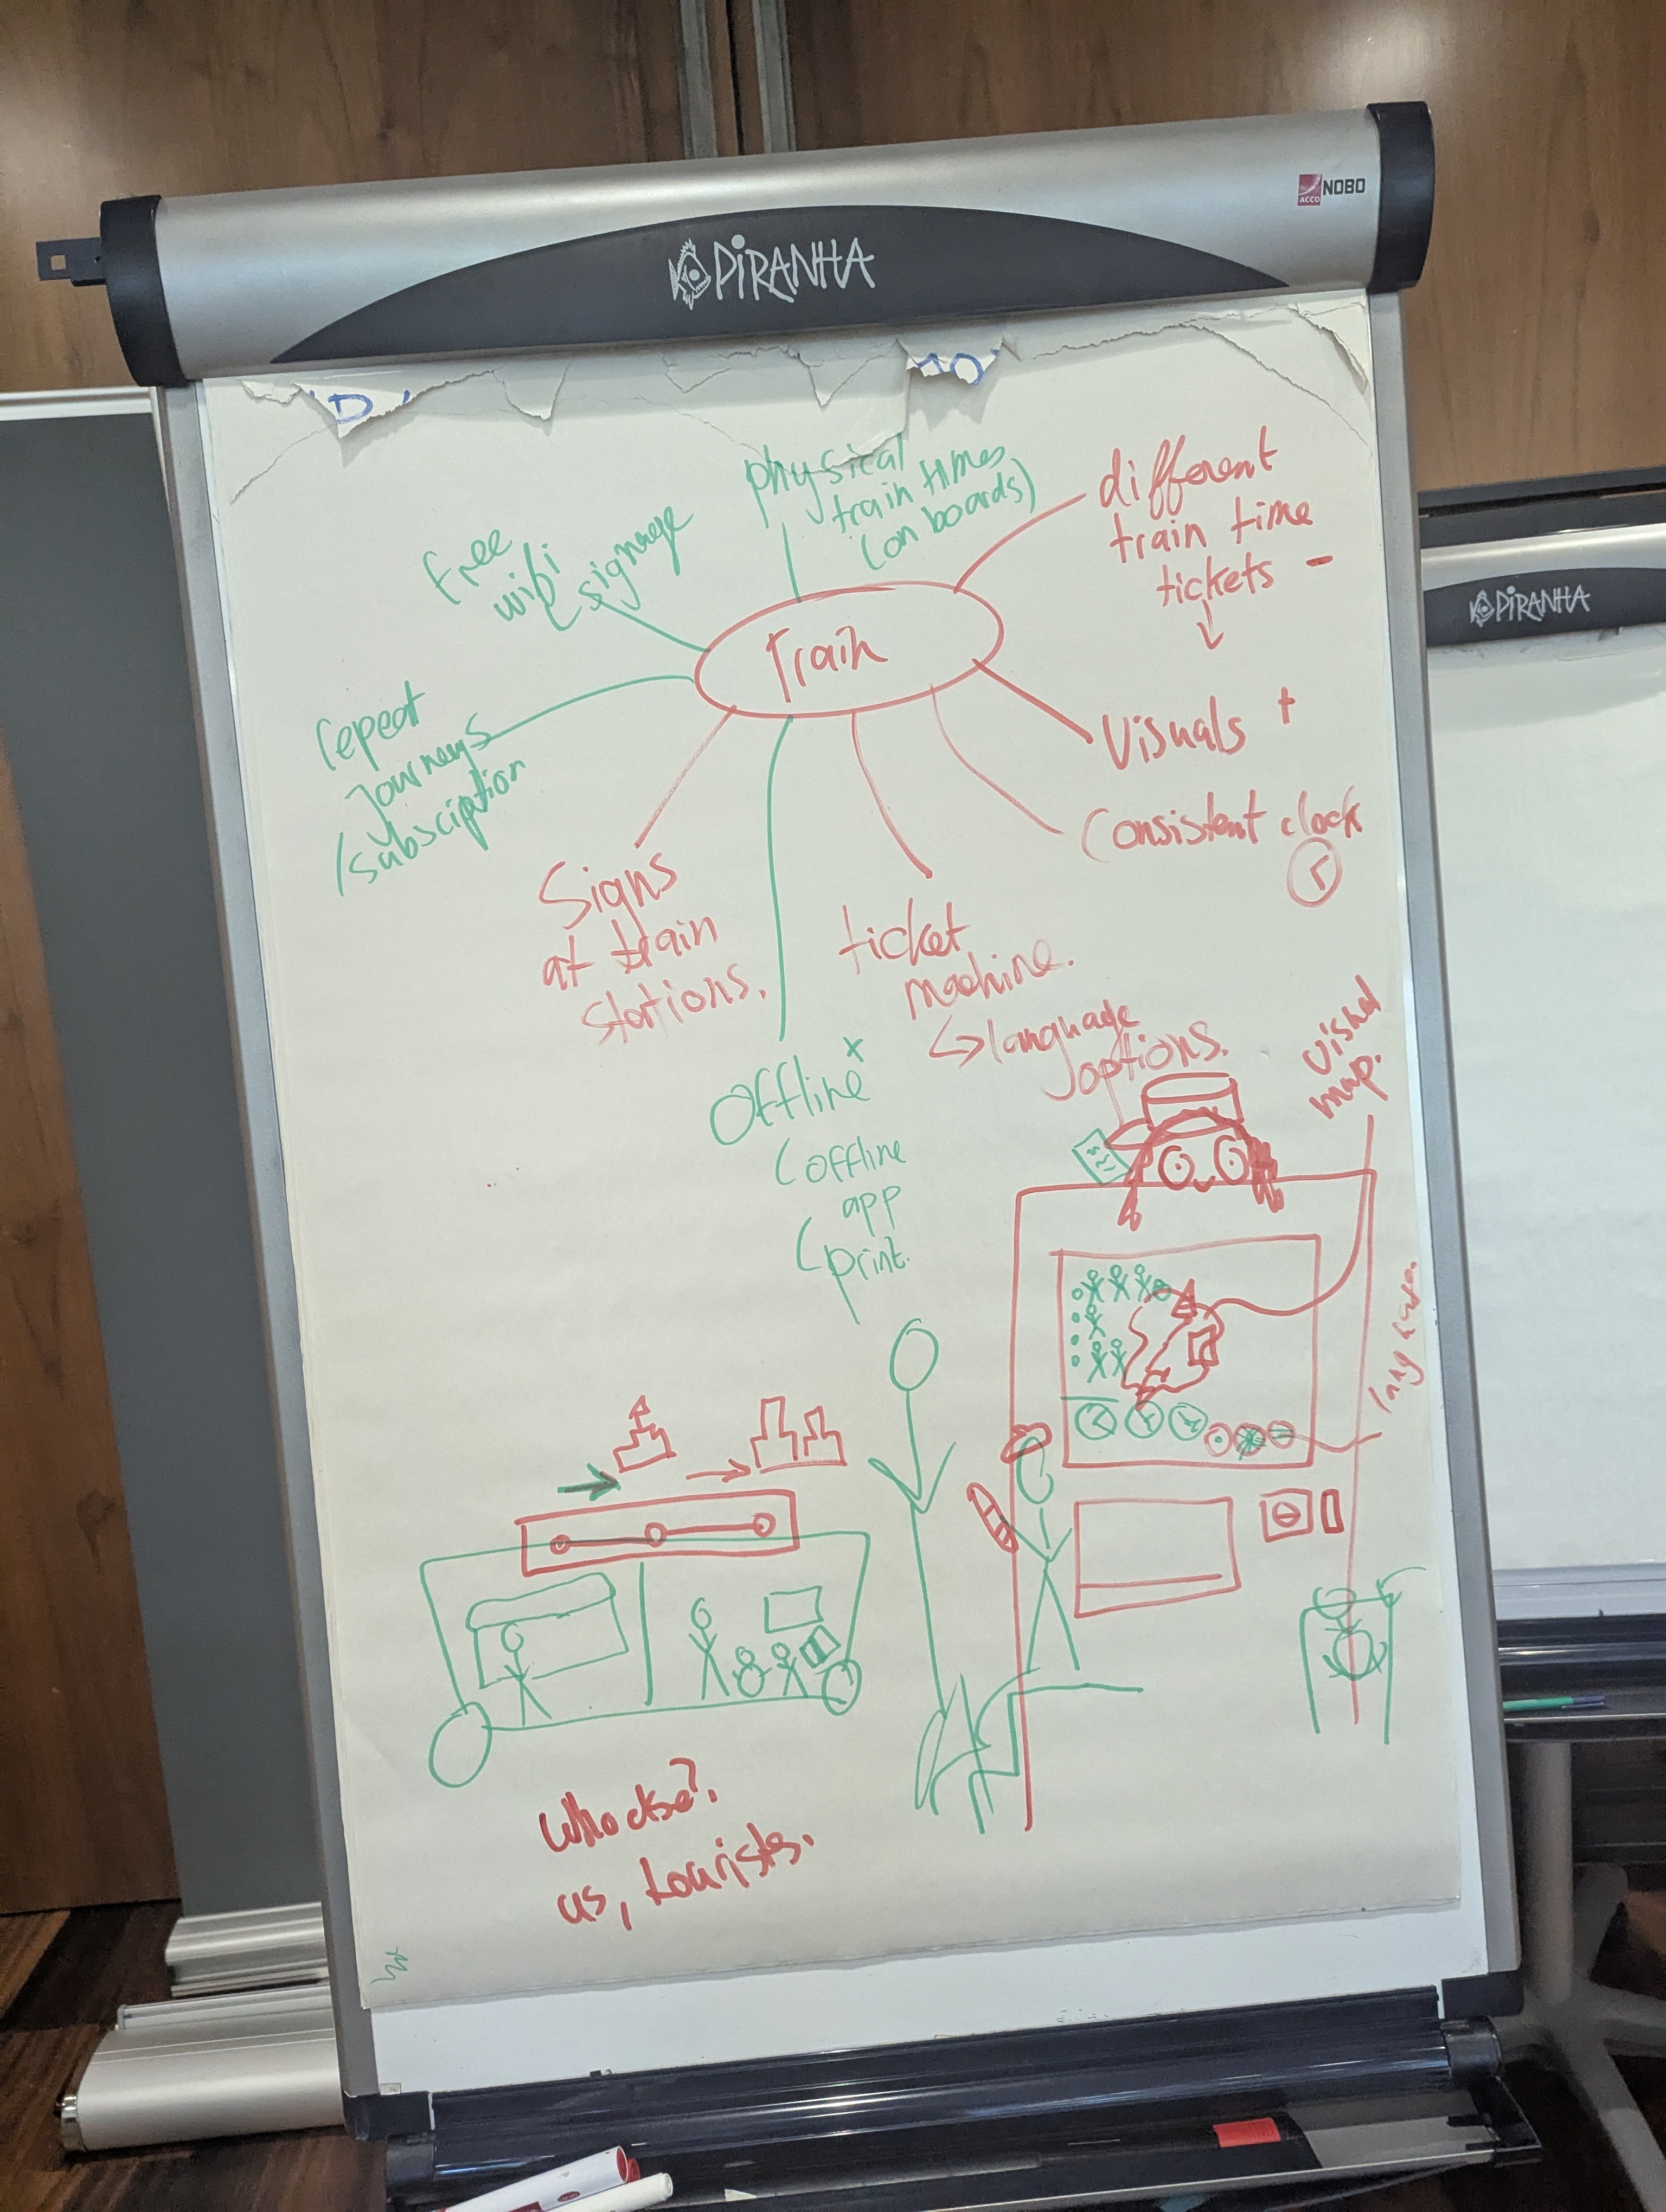 NOBO
ACCO
PiRANHA
PiRANHA
D
physical
train times
(on boards)
different
train time
tickets -
free
wifi
signage
Train
Visuals +
Consistent clock
repeat
Journeys
/subsciption
Signs
at train
stations.
ticket
machine.
↳ language
options.
Offline x
(offline
app
(print.
visual
map.
Who else?
us, tourists.